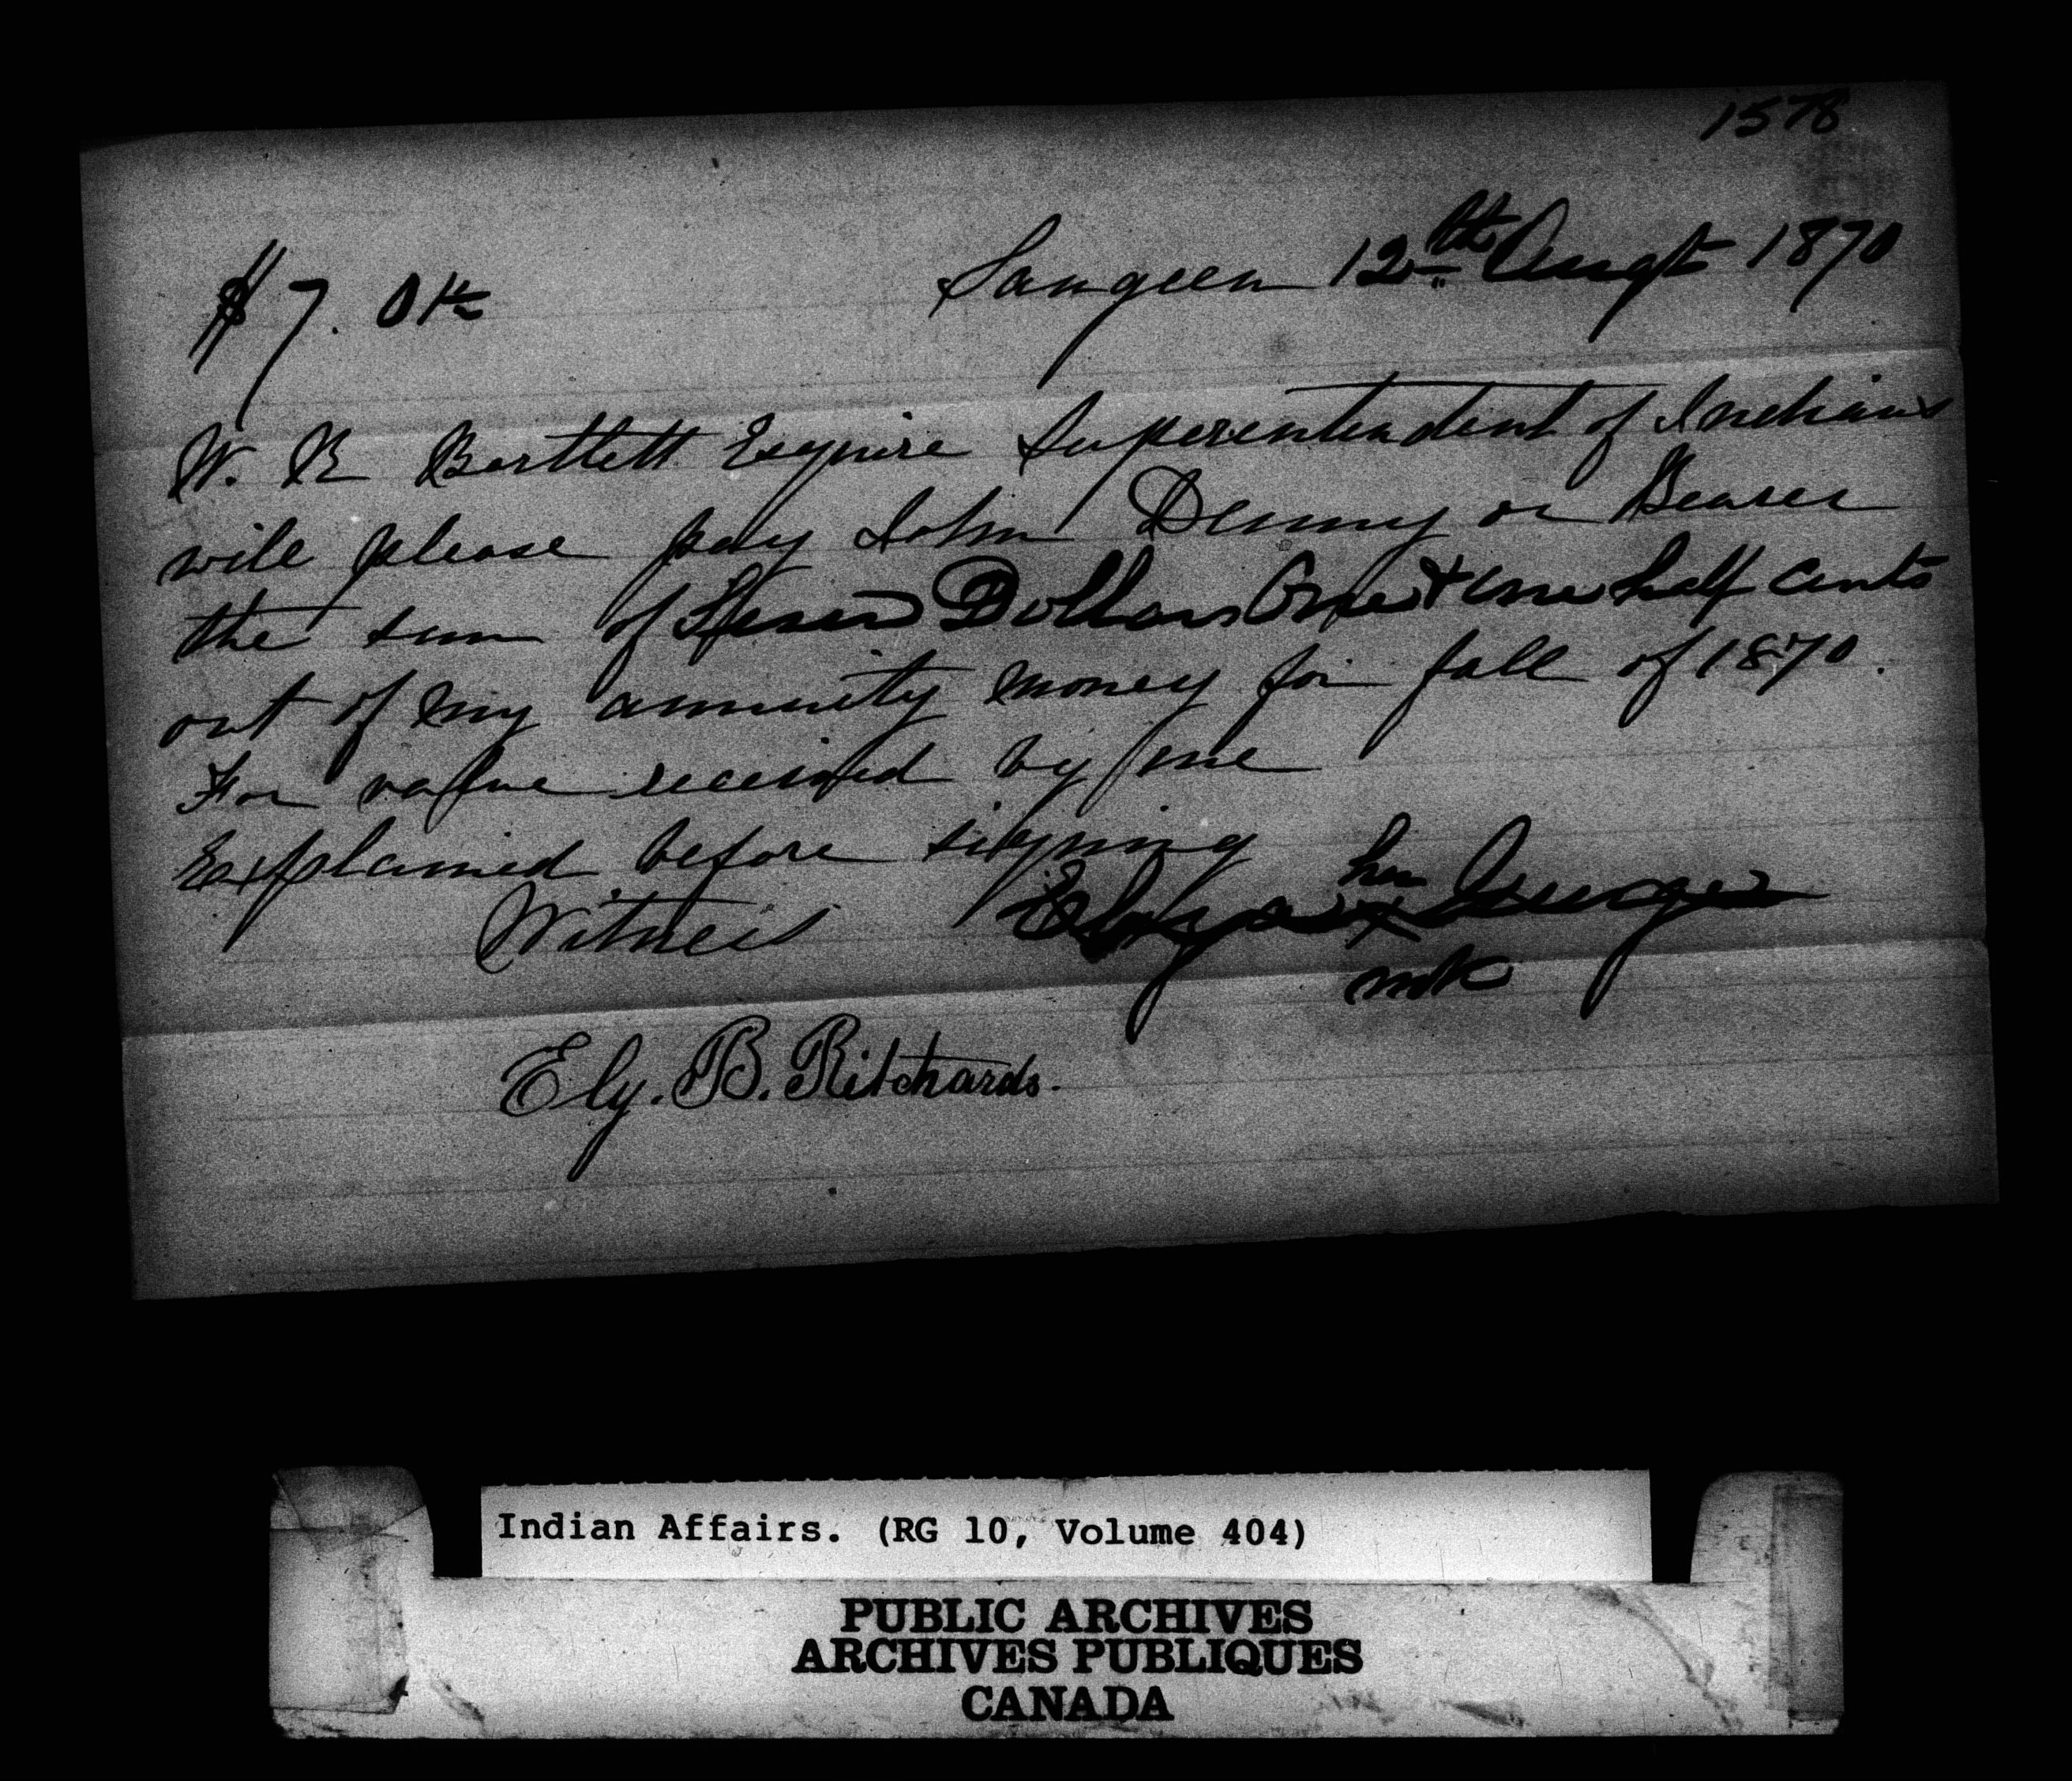 1578
$7.01½ Saugeen 12th Augt 1870
W. R Bartlett Esquire Superentendent of Indians
will please pay John Denny or Bearer
the sum of Seven Dollars One & one half cents
out of my annuity money for fall of 1870.
For value received by me
Explained before signing
her
Witness X
mk
Ely. B. Ritchards.
Indian Affairs. (RG 10, Volume 404)
PUBLIC ARCHIVES
ARCHIVES PUBLIQUES
CANADA